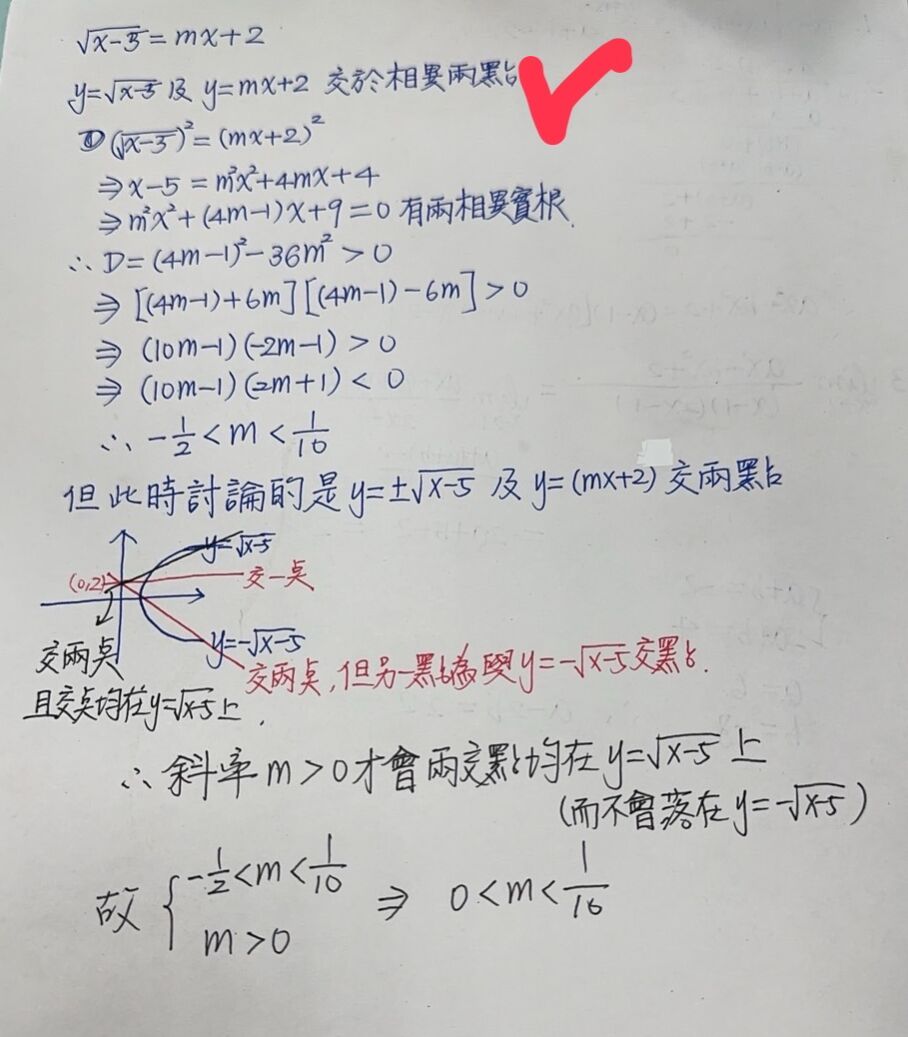 √x-3 = mx+2
y=√x-5 及 y=mx+2 交於相異兩點
① (√x-3)² = (mx+2)²
⇒ x-5 = m²x²+4mx+4
⇒ m²x²+(4m-1)x+9=0 有兩相異實根
∴ D = (4m-1)²-36m² > 0
⇒ [(4m-1)+6m][(4m-1)-6m] > 0
⇒ (10m-1)(-2m-1) > 0
⇒ (10m-1)(2m+1) < 0
∴ -1/2 < m < 1/10
但此時討論的是 y=±√x-5 及 y=(mx+2) 交兩點
y=√x-5
(0,2)
交一点
y=-√x-5
交兩点
且交点均在y=√x-5上.
交兩点,但另一點為與y=-√x-5交點.
∴ 斜率 m>0 才會兩交點均在 y=√x-5 上
(而不會落在 y=-√x-5)
故 { -1/2<m<1/10 ⇒ 0<m<1/10
m>0